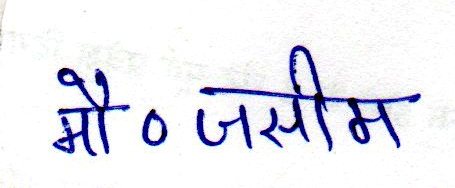 मौ० जसीम